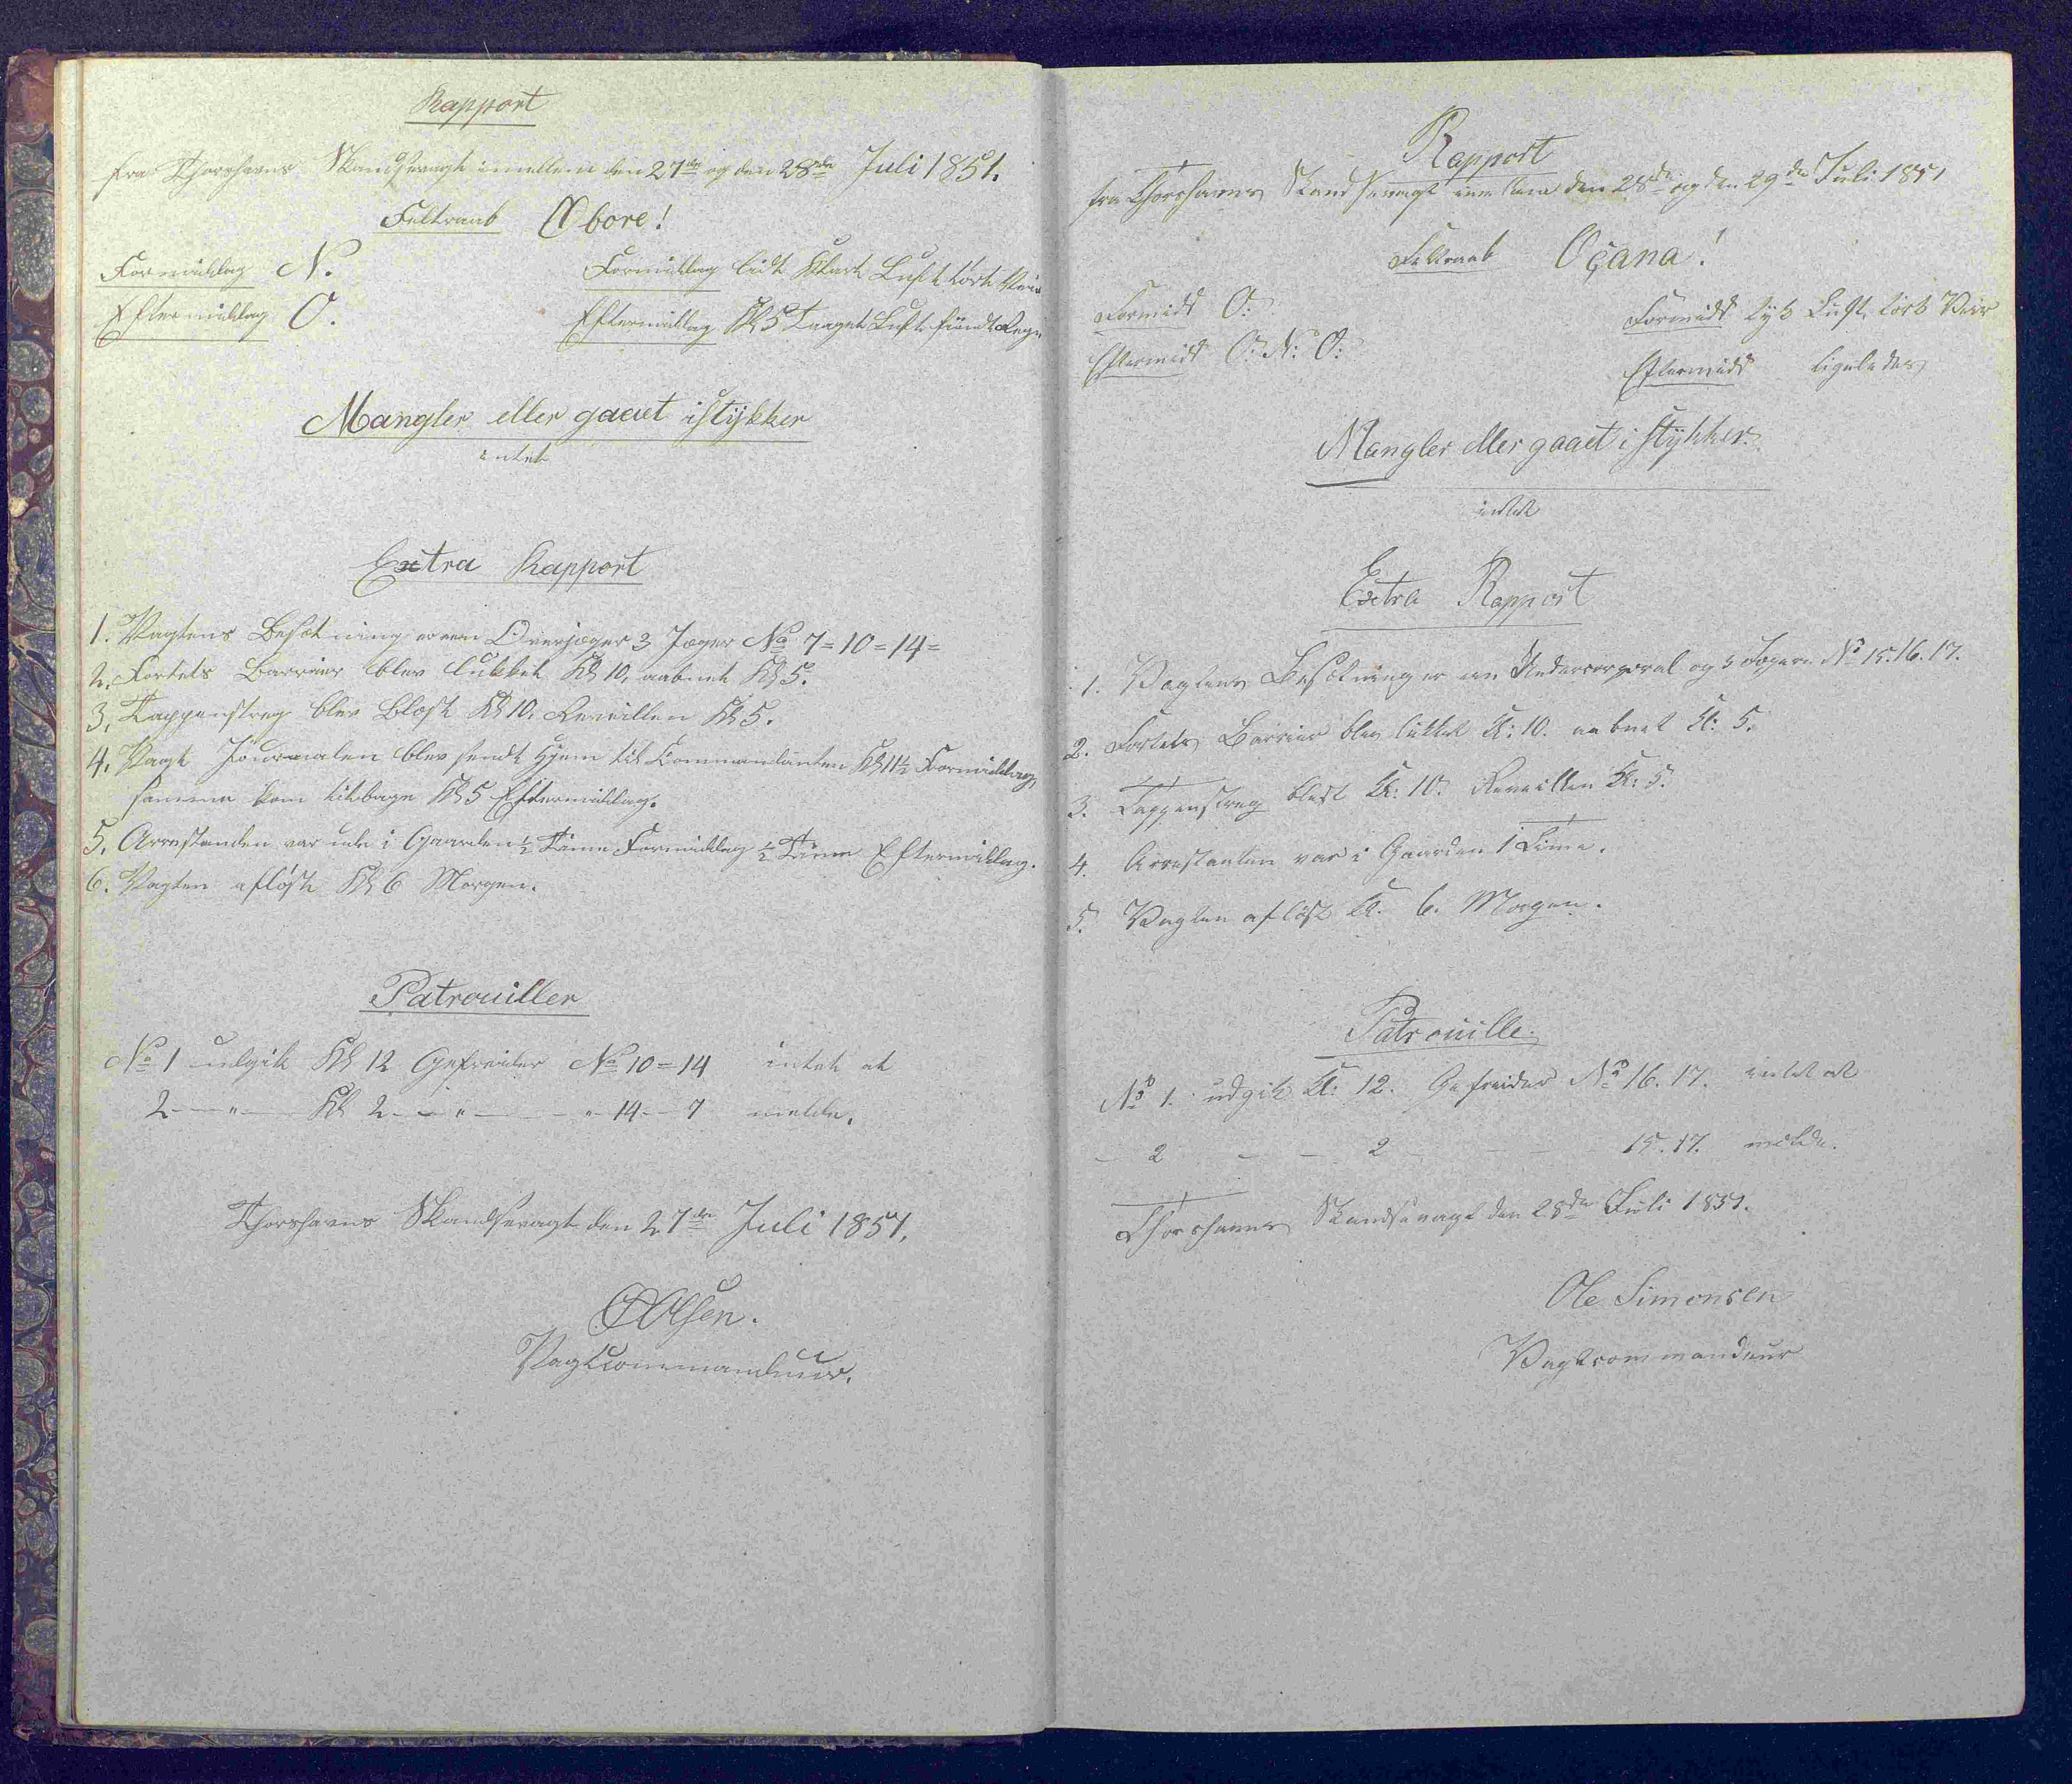 Rapport
fra Thorshavns Skandsevagt imellem den 27de og den 28de Juli 1851.
Feltraab Obore!
Formiddag N. Formiddag lidt klart Luft tört Veir
Eftermiddag O. Eftermiddag Kl 5 Taaget Luft fiindt Regn
Mangler eller gaaet istÿkker
intet
Extra Rapport
1. Vagtens Besætning er en Overjæger 3 Jæger No 7=10=14=
2. Fortets Barrier blev lukket Kl 10, aabnet Kl 5.
3. Tappenstreg blev Blæst Kl 10, Reveillen Kl 5.
4. Vagt Journalen blev sendt hjem til Commandanten Kl 11½ Formiddag,
samme kom tilbage Kl 5 Eftermiddag.
5. Arrestanden var ude i Gaarden ½ Time Formiddag ½ Time Eftermiddag.
6. Vagten aflöst Kl 6 Morgen.
Patrouiller
No 1 udgik Kl 12 Gefreider No 10=14 intet at
2 — " — Kl 2 — " — — " 14 — 7 melde.
Thorshavns Skandsevagt den 27de Juli 1851.
Olsen.
Vagtcommandeur.
Rapport
fra Thorshavns Skandsevagt imellem den 28de og den 29de Juli 1851
Feltraab Oçana!
Formidd O: Formidd Tyk Luft, tört Veir
Eftermidd O: N: O: Eftermidd ligeledes
Mangler eller gaaet i stÿkker.
intet
Extra Rapport
1. Vagtens Besætning er en Undercorporal og 3 Jægere No 15. 16. 17.
2. Fortets Barrier blev lukket Kl: 10. aabnet Kl: 5.
3. Tappenstreg blæst Kl: 10. Reveillen Kl: 5.
4. Arrestanten var i Gaarden 1 Time.
5. Vagten aflöst Kl. 6. Morgen.
Patrouille.
No 1. udgik Kl: 12. Gefreider No 16. 17. intet at
— 2 — — 2 — — — 15. 17. melde.
Thorshavns Skandsevagt den 28de Juli 1851.
Ole Simonsen
Vagtcommandeur